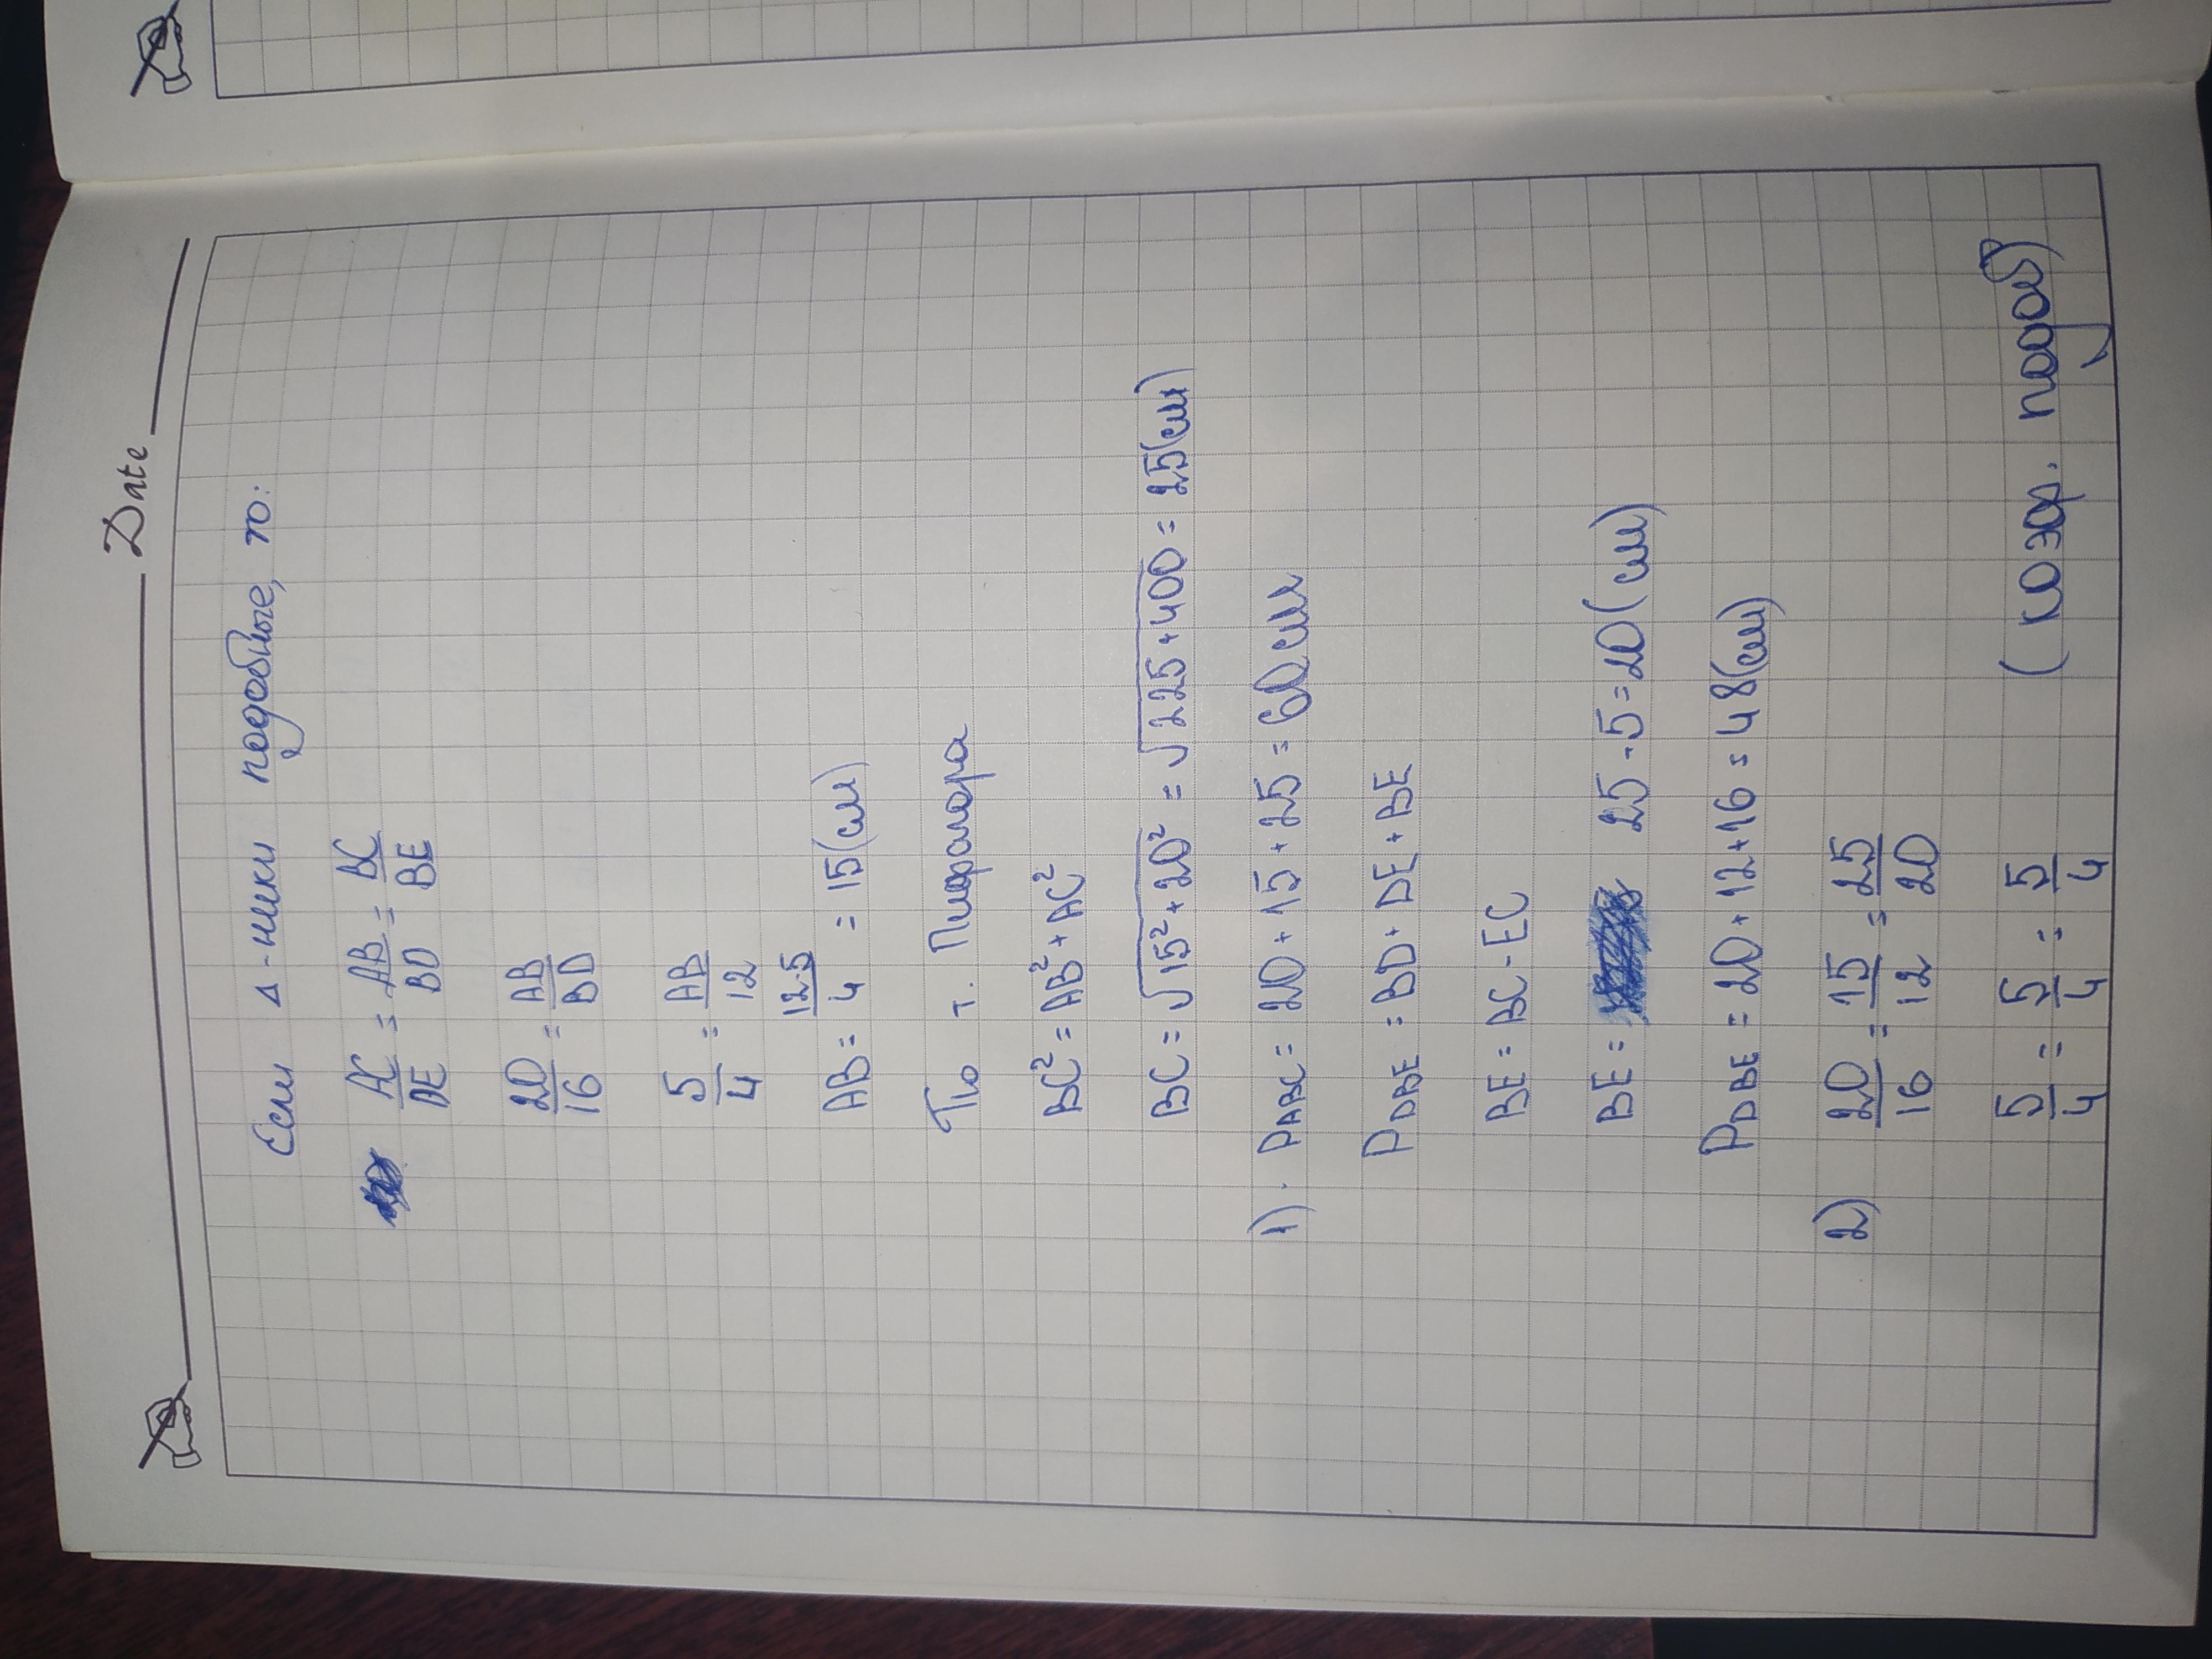 Date
Если Δ-ники подобные, то:
AC/DE = AB/BD = BC/BE
20/16 = AB/BD
5/4 = AB/12
AB = 12·5/4 = 15(см)
По т. Пифагора
BC² = AB² + AC²
BC = √15² + 20² = √225 + 400 = 25(см)
1) · PABC = 20 + 15 + 25 = 60 см
PDBE = BD + DE + BE
BE = BC - EC
BE = 25 - 5 = 20 (см)
PDBE = 20 + 12 + 16 = 48(см)
2) 20/16 = 15/12 = 25/20
5/4 = 5/4 = 5/4 (коэф. подоб)